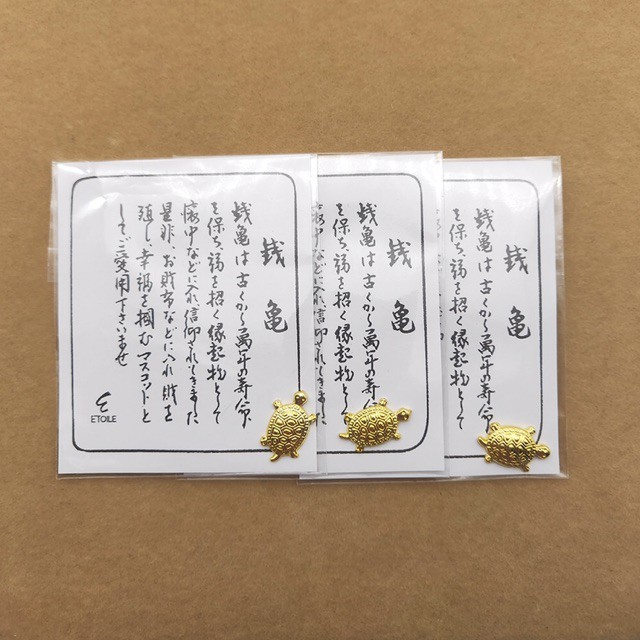 銭亀
銭亀は古くから萬年の寿命
を保ち、福を招く縁起物として
懐中などに入れ信仰されてきました
是非、お財布などに入れ財を
殖し、幸福を掴むマスコットと
してご愛用下さいませ
ETOILE
銭亀
銭亀は古くから萬年の寿命
を保ち、福を招く縁起物として
懐中などに入れ信仰されてきました
銭亀
銭亀は古くから萬年の寿命
を保ち、福を招く縁起物として